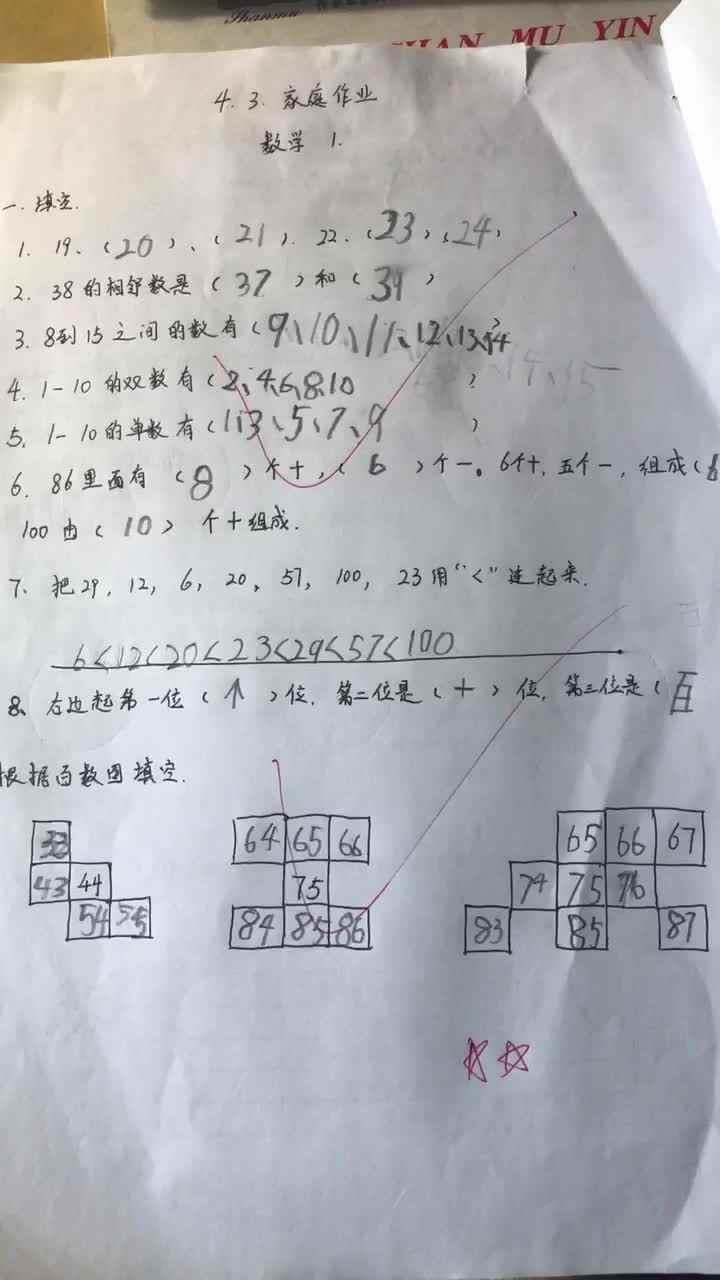 SHAN MU YIN
4.3.家庭作业
数学 1.
一.填空.
1. 19、(20)、(21). 22、(23)、(24)
2. 38的相邻数是(37)和(39)
3. 8到15之间的数有(9、10、11、12、13、14)
4. 1-10的双数有(2、4、6、8、10)
5. 1-10的单数有(1、3、5、7、9)
6. 86里面有(8)个十,(6)个一。6个十,五个一,组成(6
100由(10)个十组成.
7、把29, 12, 6, 20, 57, 100, 23用“<”连起来.
6<12<20<23<29<57<100
8、右边起第一位(个)位,第二位是(十)位,第三位是(百
根据百数图填空.
33 64 65 66 65 66 67
43 44 75 74 75 76
54 55 84 85 86 83 85 87